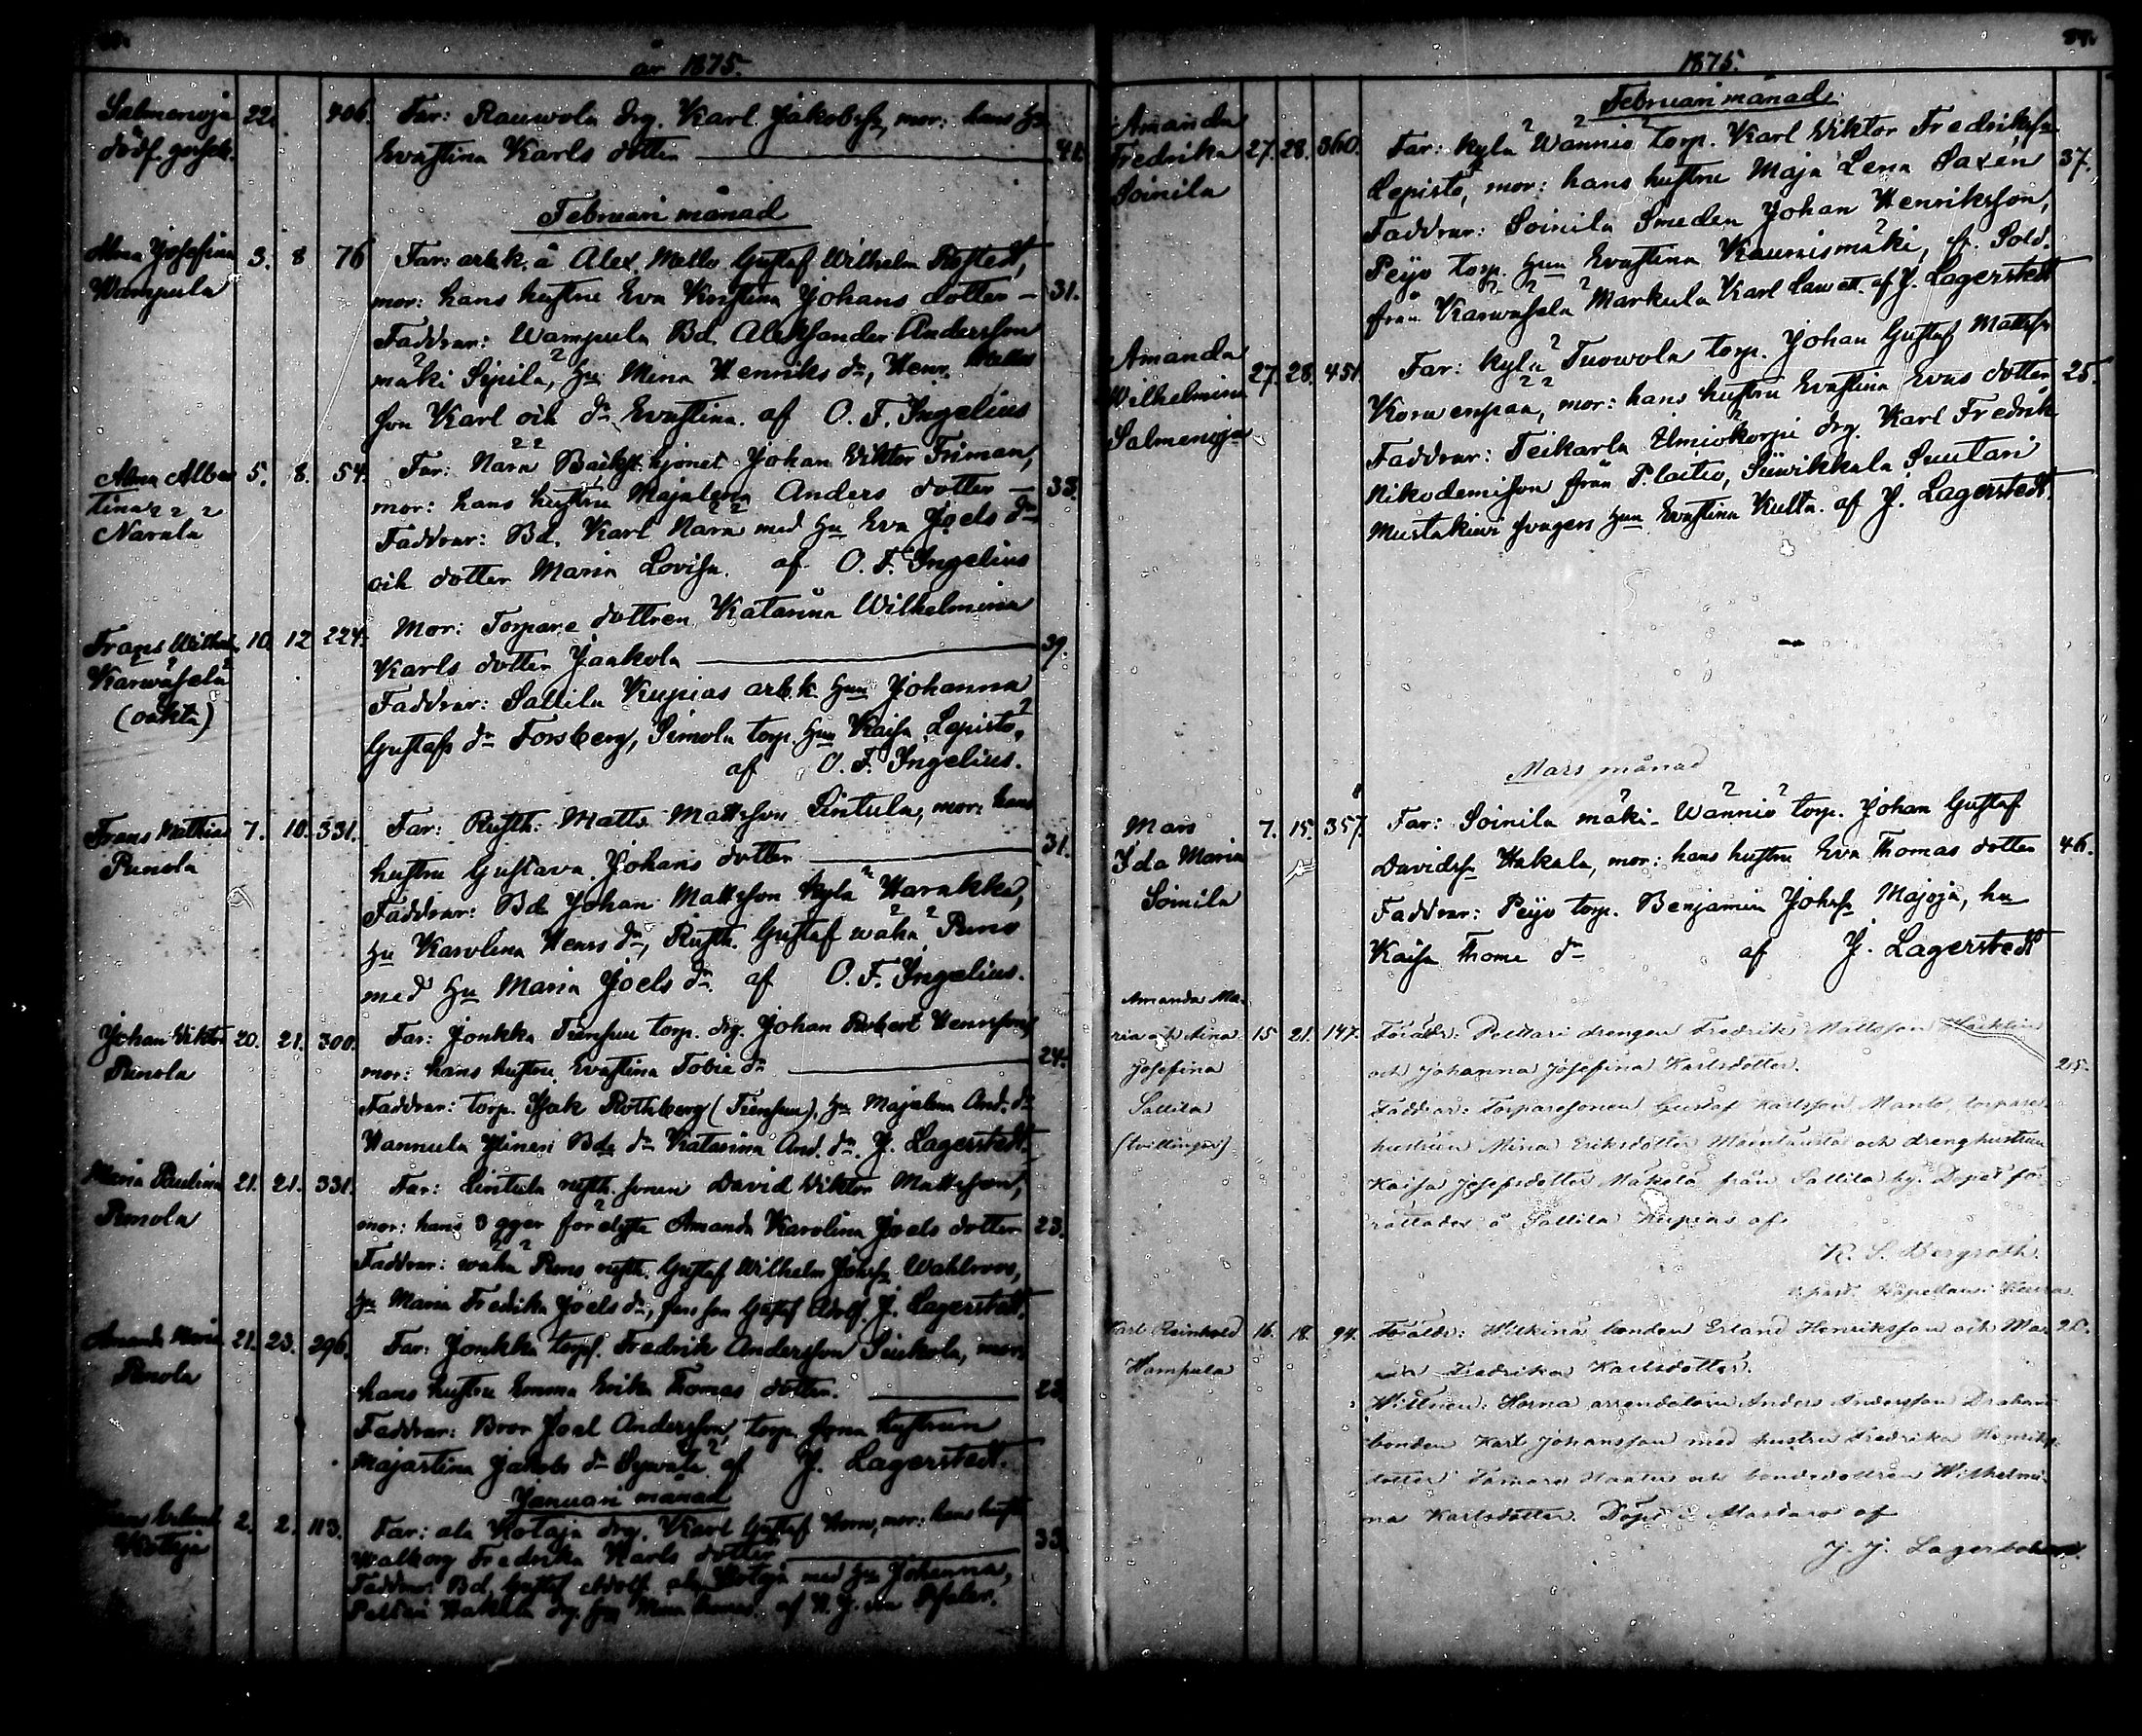 år 1875.
Salmenoja 22. 406. Far: Rauwola drg. Karl Jakobss, mor: hans hu
dödf. gosseb. Evastina Karls dotter 42
Februari månad
Alma Josefina 3. 8 76 Far: arb.k. å Alex. Mallo Gustaf Wilhelm Rostedt,
Wampula mor: hans hustru Eva Kristina Johans dotter 31.
Faddrar: Wampula Bd. Aleksander Andersson
mäki Sipilä, hu Mina Henriks dr, Henr. Matts
son Karl och dr Evastina. af O. F. Ingelius
Alma Alber 5. 8. 54. Far: Närä Johan Viktor Friman,
tina mor: hans hustru Majalena Anders dotter 33.
Närälä Faddrar: Bd. Karl Närä med hu Eva Joels dr
och dotter Maria Lovisa. af O. F. Ingelius
Frans Wilhel 10. 12 224. Mor: Torpare dottren Katarina Wilhelmina
Karwasela Karls dotter Jaakola 39.
(oäkta) Faddrar: Sallila Kupias arb.k. hun Johanna
Gustafs dr Forsberg, Simola torp. hun Kaisa Lepistö,
af O. F. Ingelius.
Frans Mathias 7. 10. 331. Far: Rusth. Matts Mattsson Lintula, mor: hans
Punola hustru Gustava Johans dotter 31.
Faddrar: Bd. Johan Mattsson kylä Harakka,
hu Karolina Henrs dr, Rusth. Gustaf wähä Puno
med hu Maria Joels dr. af O. F. Ingelius.
Johan Viktor 20. 21. 300. Far: Jonkka torp. drg. Johan Robert Henrsson,
Punola mor: hans hustru Evastina Tobie dr 24.
Faddrar: torp. Isak Rothberg hu Majalena And. dr
Hannula Ylinen Bds dr Katarina And. dr. J. Lagerstedt.
Maria Paulina 21. 21. 331. Far: Lintula rusth. sonen David Viktor Mattsson,
Punola mor: hans 3 gger för Amanda Karolina Joels dotter 23.
Faddrar: wähä Puno rusth. Gustaf Wilhelm Johss Wahlroos,
hu Maria Fredrika Joels dr, Gustaf Adolf. J. Lagerstedt.
Amanda Maria 21. 23. 296. Far: Jonkka torp. Fredrik Andersson mor:
Punola hans hustru Emma Erika Thomas dotter. 23
Faddrar: Bror Joel Andersson, torp. hustrun
Majastina Jakobs dr af J. Lagerstedt.
Januari månad
Frans Erland 2. 2. 113. Far: ala Kotaja drg. Karl Gustaf mor: hans hustr
Kotaja Walborg Fredrika Karls dotter 33
Faddrar: Bd. Gustaf Adolf ala Kotaja med hu Johanna,
1875.
Februari månad
Amanda
Fredrika 27. 28. 360. Far: kylä Wänniö torp. Karl Viktor Fredrikss
Soinila Lepistö, mor: hans hustru Maja Lena Saxen 37.
Faddrar: Soinila Smeden Johan Henriksson,
Peijo torp. hun Evastina Kaunismäki, Sold.
från Karwasela Markula Karl af J. Lagerstedt
Amanda 27. 28. 451. Far: kylä Tuowola torp. Johan Gustaf Mattss
Wilhelmina Korwenpää, mor: hans hustru Evastina Evas dotter 25.
Salmenoja Faddrar: Teikarla drg. Karl Fredrik
Nikodemisson från P. Laitio, Siiwikkala Suutari
Mustakiwi svagers hun Evastina Kulta. af J. Lagerstedt.
Mars månad
Mars 7. 15. 357. Far: Soinila mäki-Wänniö torp. Johan Gustaf
Ida Maria Davidss Hakala, mor: hans hustru Eva Thomas dotter 46.
Soinila Faddrar: Peijo torp. Benjamin Johss Majoja, hu
Kaisa Thome dr af J. Lagerstedt
Amanda Ma-
ria och Aina 15 21. 147. Föräldr: Peltari drengen Fredrik Mattsson
Josefina och Johanna Josefina Karlsdotter. 25.
Sallila Faddrar: Torparesonen Gustaf Karlsson torpare-
(tvillingar) hustrun Mina Eriksdotter och drenghustrun
Kaisa Josefsdotter Mäkelä från Sallila by. Dopet för-
rättades å Sallila Kupias af
K. S. Bergroth.
Karl Reinhold 16. 18. 94. Föräldr: bonden Erland Henriksson och Ma-
Wampula ria Fredrika Karlsdotter.
Wittnen: Horna arrendatorn Anders Andersson
bonden Karl Johansson med hustru Fredrika Henriks-
dotter och bondedottren Wilhelmi-
na Karlsdotter. Döpt i Alastaro af